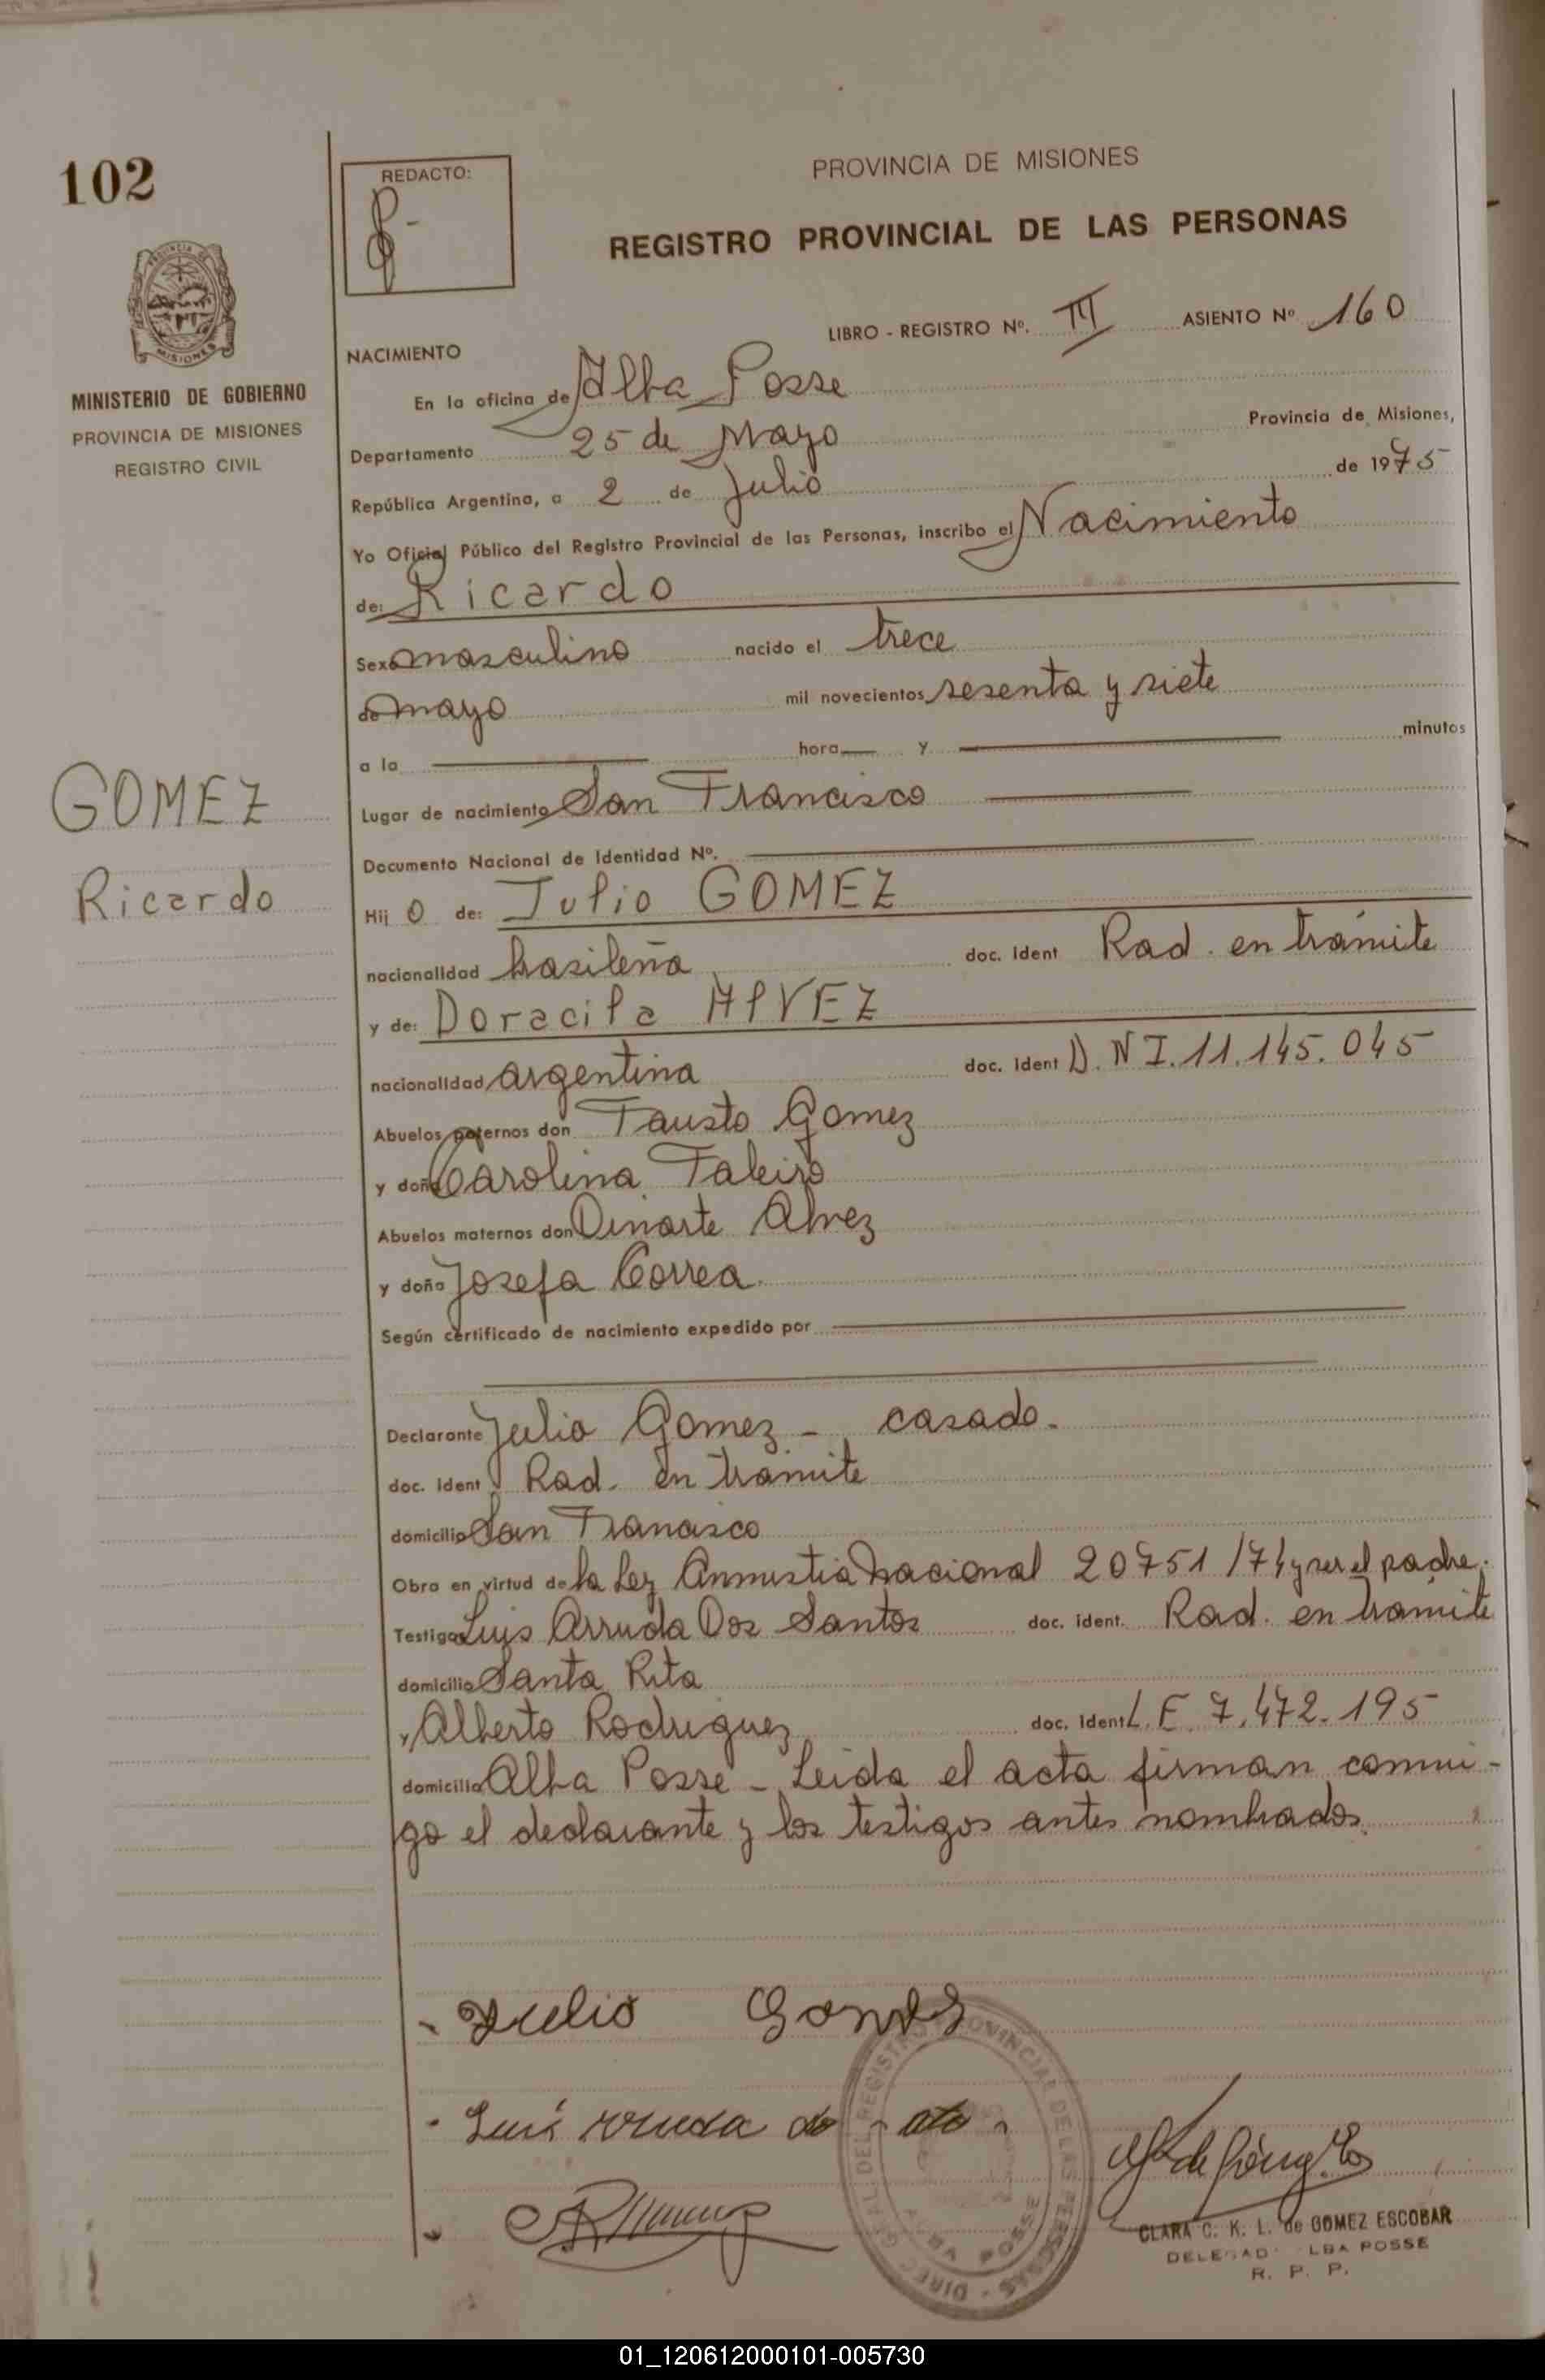 102
REDACTO:
PROVINCIA DE MISIONES
REGISTRO PROVINCIAL DE LAS PERSONAS
LIBRO - REGISTRO Nº. III ASIENTO Nº 160
MINISTERIO DE GOBIERNO
PROVINCIA DE MISIONES
REGISTRO CIVIL
NACIMIENTO
En la oficina de Alba Posse
Departamento 25 de Mayo Provincia de Misiones,
República Argentina, a 2 de Julio de 1975
Yo Oficial Público del Registro Provincial de las Personas, inscribo el Nacimiento
de: Ricardo
Sexo masculino nacido el trece
de mayo mil novecientos sesenta y siete
a la hora y minutos
GOMEZ
Ricardo
Lugar de nacimiento San Francisco
Documento Nacional de Identidad Nº.
Hij o de: Julio GOMEZ
nacionalidad brasileña doc. Ident Rad. en trámite
y de: Doracila AlVEZ
nacionalidad argentina doc. ident D.N I. 11.145.045
Abuelos paternos don Fausto Gomez
y doña Carolina Taleiro
Abuelos maternos don Dinarte Alvez
y doña Josefa Correa.
Según certificado de nacimiento expedido por
Declarante Julio Gomez - casado.
doc. ident Rad. en tramite
domicilio San Francisco
Obra en virtud de la Ley Amnistia Nacional 20751/74 y ser el padre.
Testigos Luis Arruda Dos Santos doc. ident. Rad. en tramite
domicilio Santa Rita
y Alberto Rodriguez doc. ident L.E. 7.472.195
domicilio Alba Posse - Leida el acta firman conmi-
go el declarante y los testigos antes nombrados.
Julio Gomes
Luis
DIREC. GRAL. DEL REGISTRO PROVINCIAL DE LAS PERSONAS
ALBA POSSE
CLARA C. K. L. de GOMEZ ESCOBAR
DELEGAD LBA POSSE
R. P. P.
01_120612000101-005730